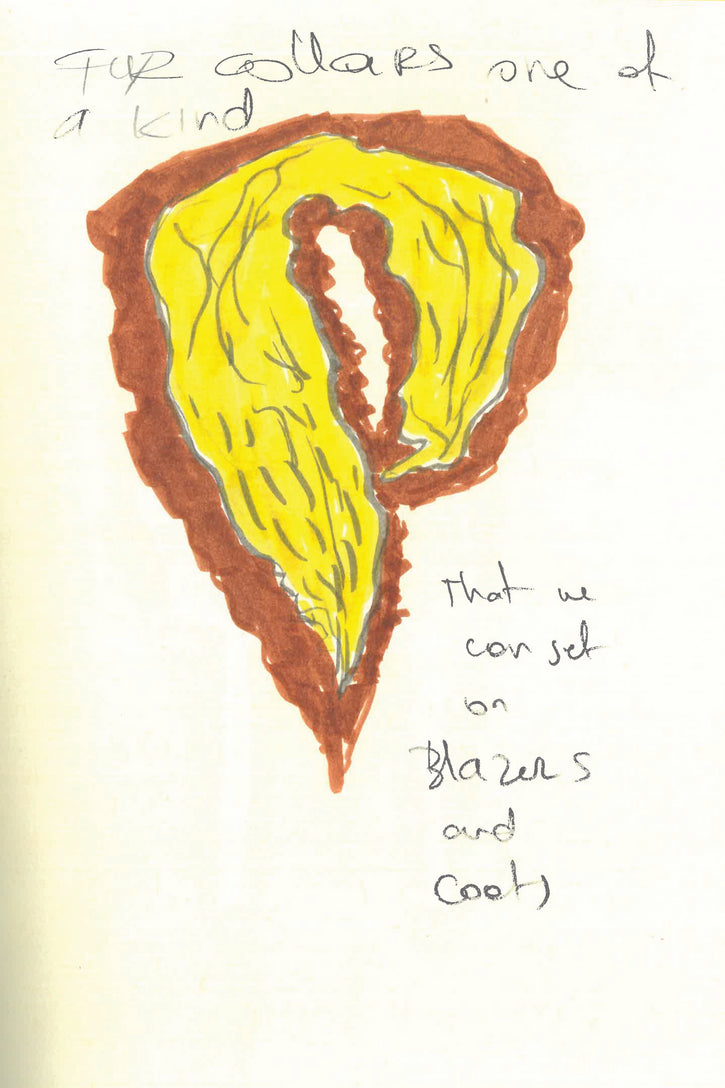 FUR collars one of
a kind
That we
can set
on
Blazers
and
coats